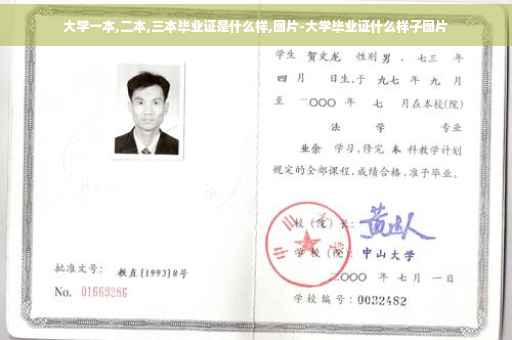 大学一本,二本,三本毕业证是什么样,图片-大学毕业证什么样子图片
学生 贺文龙 性别 男 、七三 年
四 月 日生,于 九七 年 九 月
至 二〇〇〇 年 七 月在本校(院)
法 学 专业
业余 学习,修完 本 科教学计划
规定的全部课程,成绩合格,准予毕业。
校(院)长:
学校(院): 中山大学
二〇〇〇 年 七 月 一 日
批准文号: 教直[1993]8号
No. 01669286
学校编号: 0032482